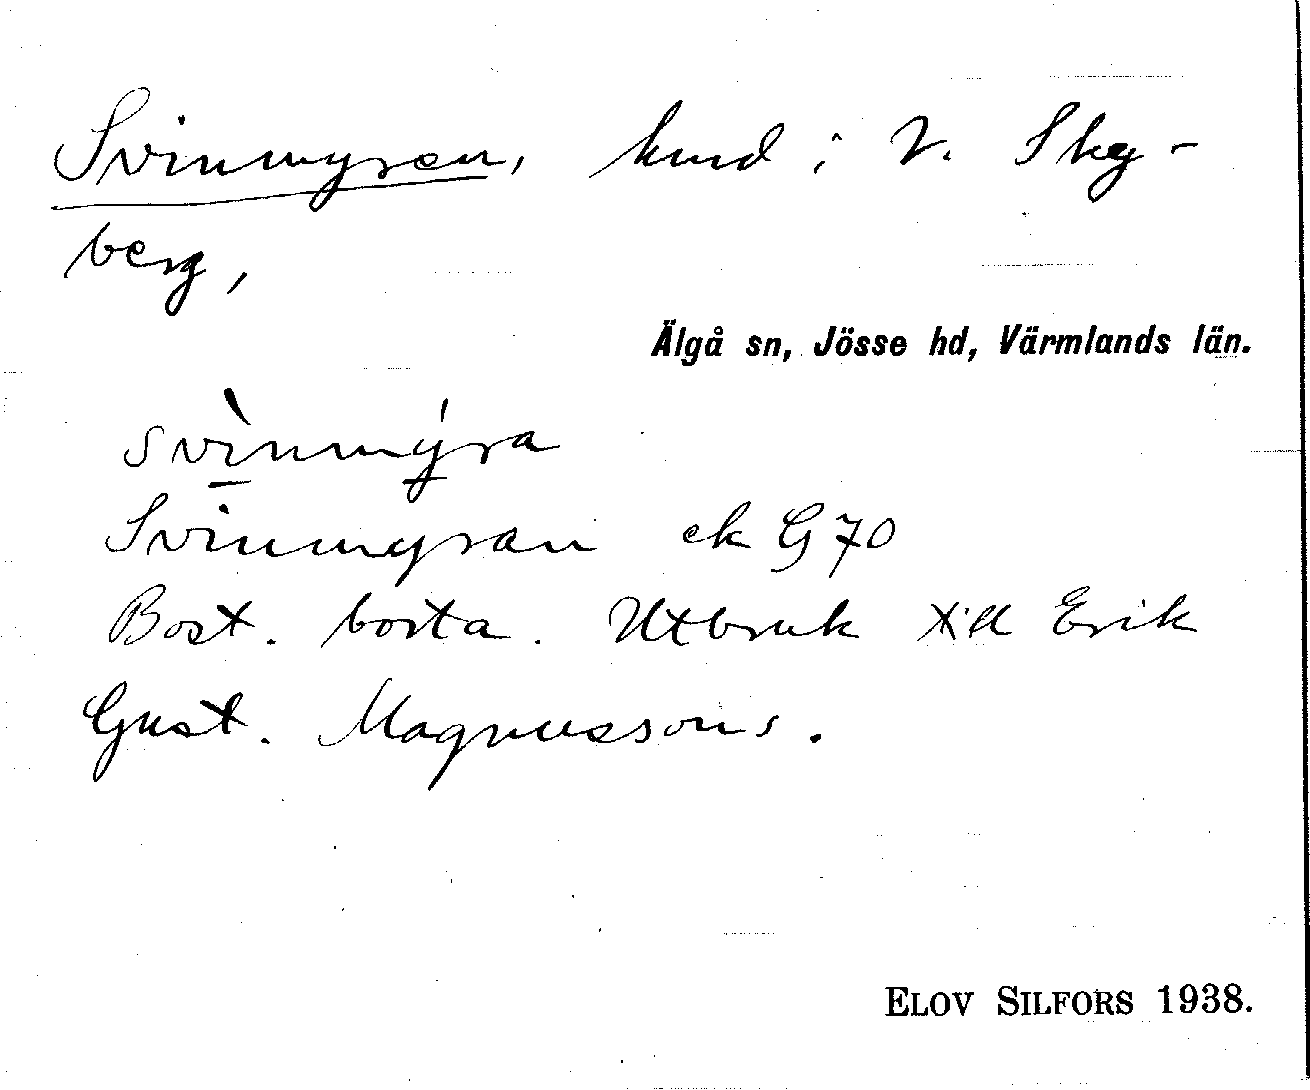 Svinmyren, hmd i V. Sky-
berg,
Älgå sn, Jösse hd, Värmlands län.
svìnmýra
Svinmyran ek G 70
Bost. borta. Utbruk till Erik
Gust. Magnussons.
ELOV SILFORS 1938.